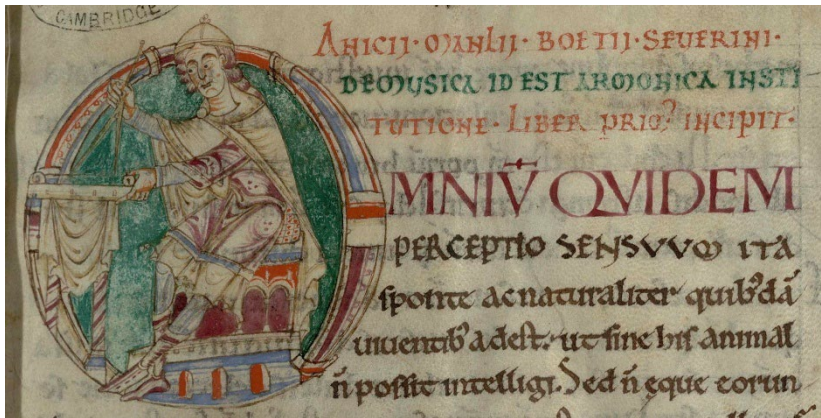 CAMBRIDGE
ANICII · MANLII · BOETII · SEVERINI ·
DE MUSICA ID EST ARMONICA INSTI
TUTIONE · LIBER PRIO᷒ INCIPIT ·
OMNIV̄ QVIDEM
PERCEPTIO SENSVVM ITA
sponte ac naturaliter quibꝰdā
uiuentibꝰ adest. ut sine his animal
n̄ possit intelligi. Sed n̄ ęque eorun